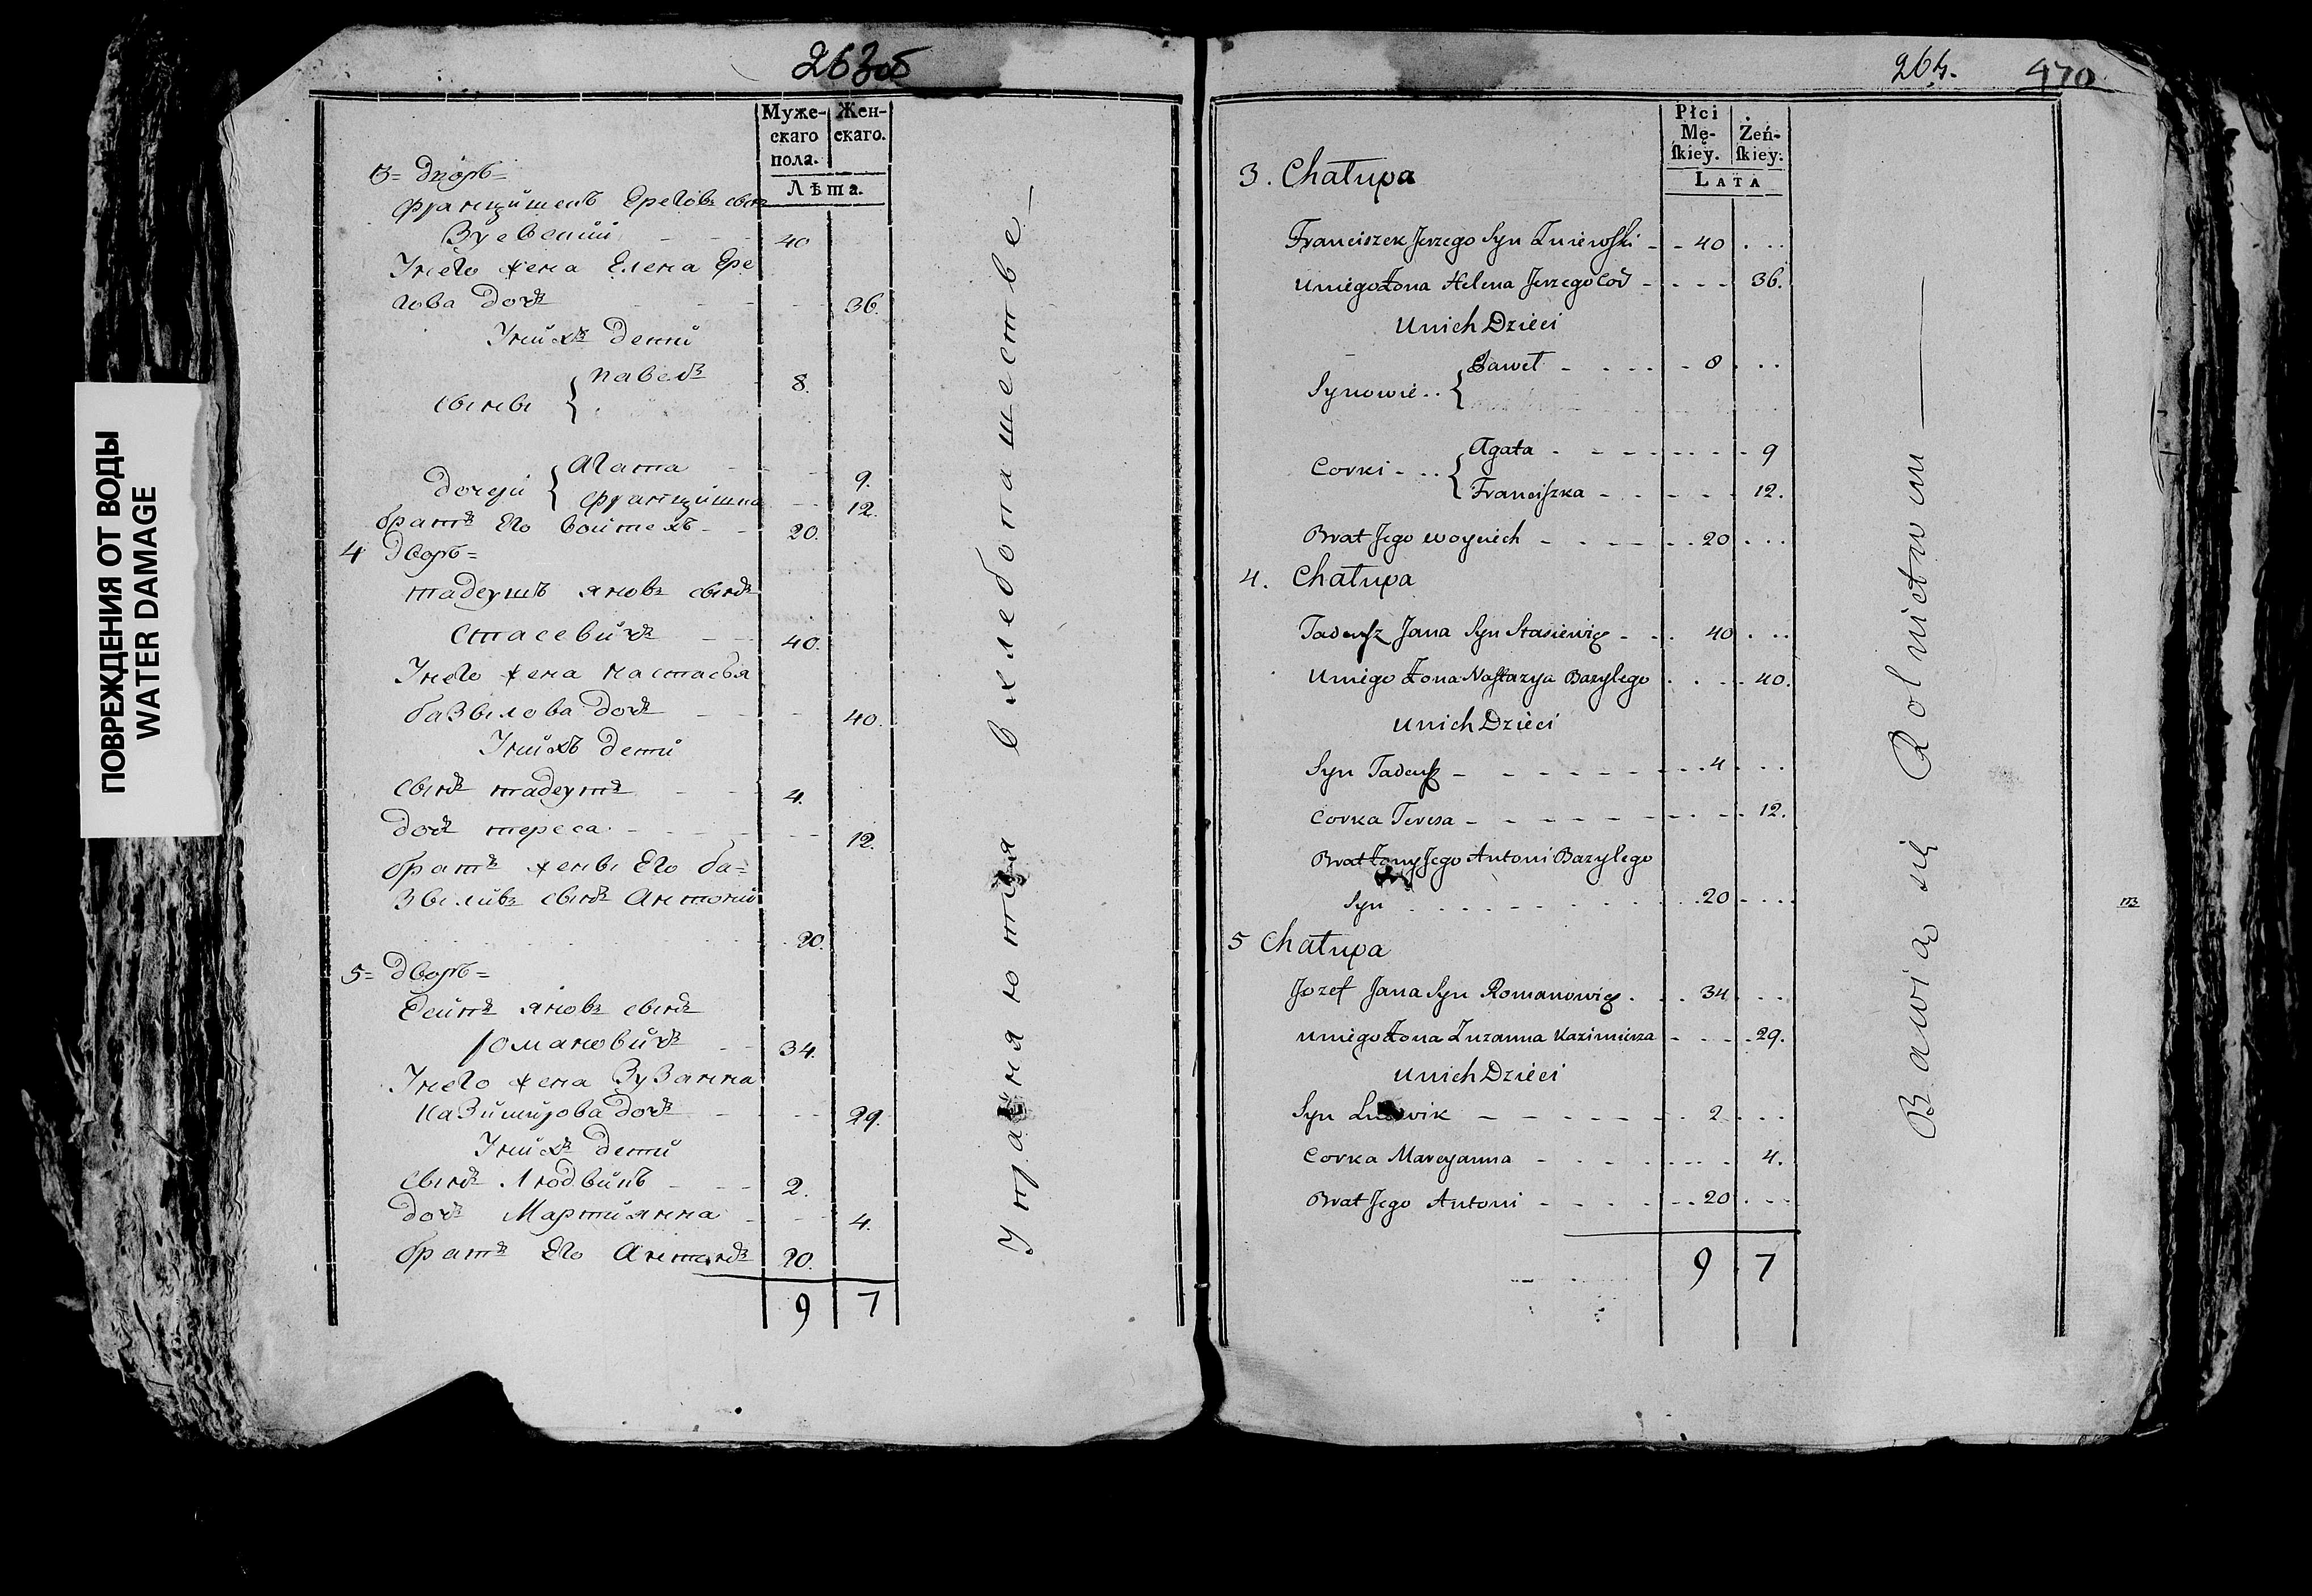 ПОВРЕЖДЕНИЯ ОТ ВОДЫ
WATER DAMAGE
263об
Муже-
скаго
пола.
Жен-
скаго.
Лѣта.
3= дворъ=
Францишекъ Ереговъ сынъ
Зуевский 40
Унего жена Елена Ере
гова дочъ 36.
Унихъ дети
сыны { павелъ 8.
дочери { агата 9.
францишка 12.
братъ Его войтехъ 20.
4 дворъ=
тадеушъ яновъ сынъ
стасевичъ 40.
Унего жена настасья
базылова дочъ 40.
Унихъ дети
сынъ тадеушъ 4.
дочъ тереса 12.
братъ жены Его ба=
зыливъ сынъ Антоний
20.
5= дворъ=
Есипъ яновъ сынъ
романовичъ 34.
Унего жена Зузанна
казимирова дочъ 29.
Унихъ дети
сынъ Людвикъ 2.
дочъ Мартиянна 4.
братъ Его Антонъ 20.
9 7
Упражняются в хлебопашестве
264.
470
Płci
Mę-
ſkiey.
Żeń-
ſkiey.
LATA
3. Chałupa
Franciszek Jerzego Syn Zuiewski 40
Uniego Żona Helena Jerzego Cor 36.
Unich Dzieci
Synowie { Paweł 8
Corki { Agata 9
Franciszka 12.
Brat Jego Woyciech 20
4. Chałupa
Tadeusz Jana Syn Stasiewicz 40
Uniego Żona Nastazya Bazylego 40.
Unich Dzieci
Syn Tadeusz 4
Corka Teresa 12.
Brat Żony Jego Antoni Bazylego
Syn 20
5 Chałupa
Jozef Jana Syn Romanowicz 34
Uniego Żona Zuzanna Kazimierza 29.
Unich Dzieci
Syn Ludwik 2
Corka Maryanna 4.
Brat Jego Antoni 20
9 7
Bawią się Rolnictwem